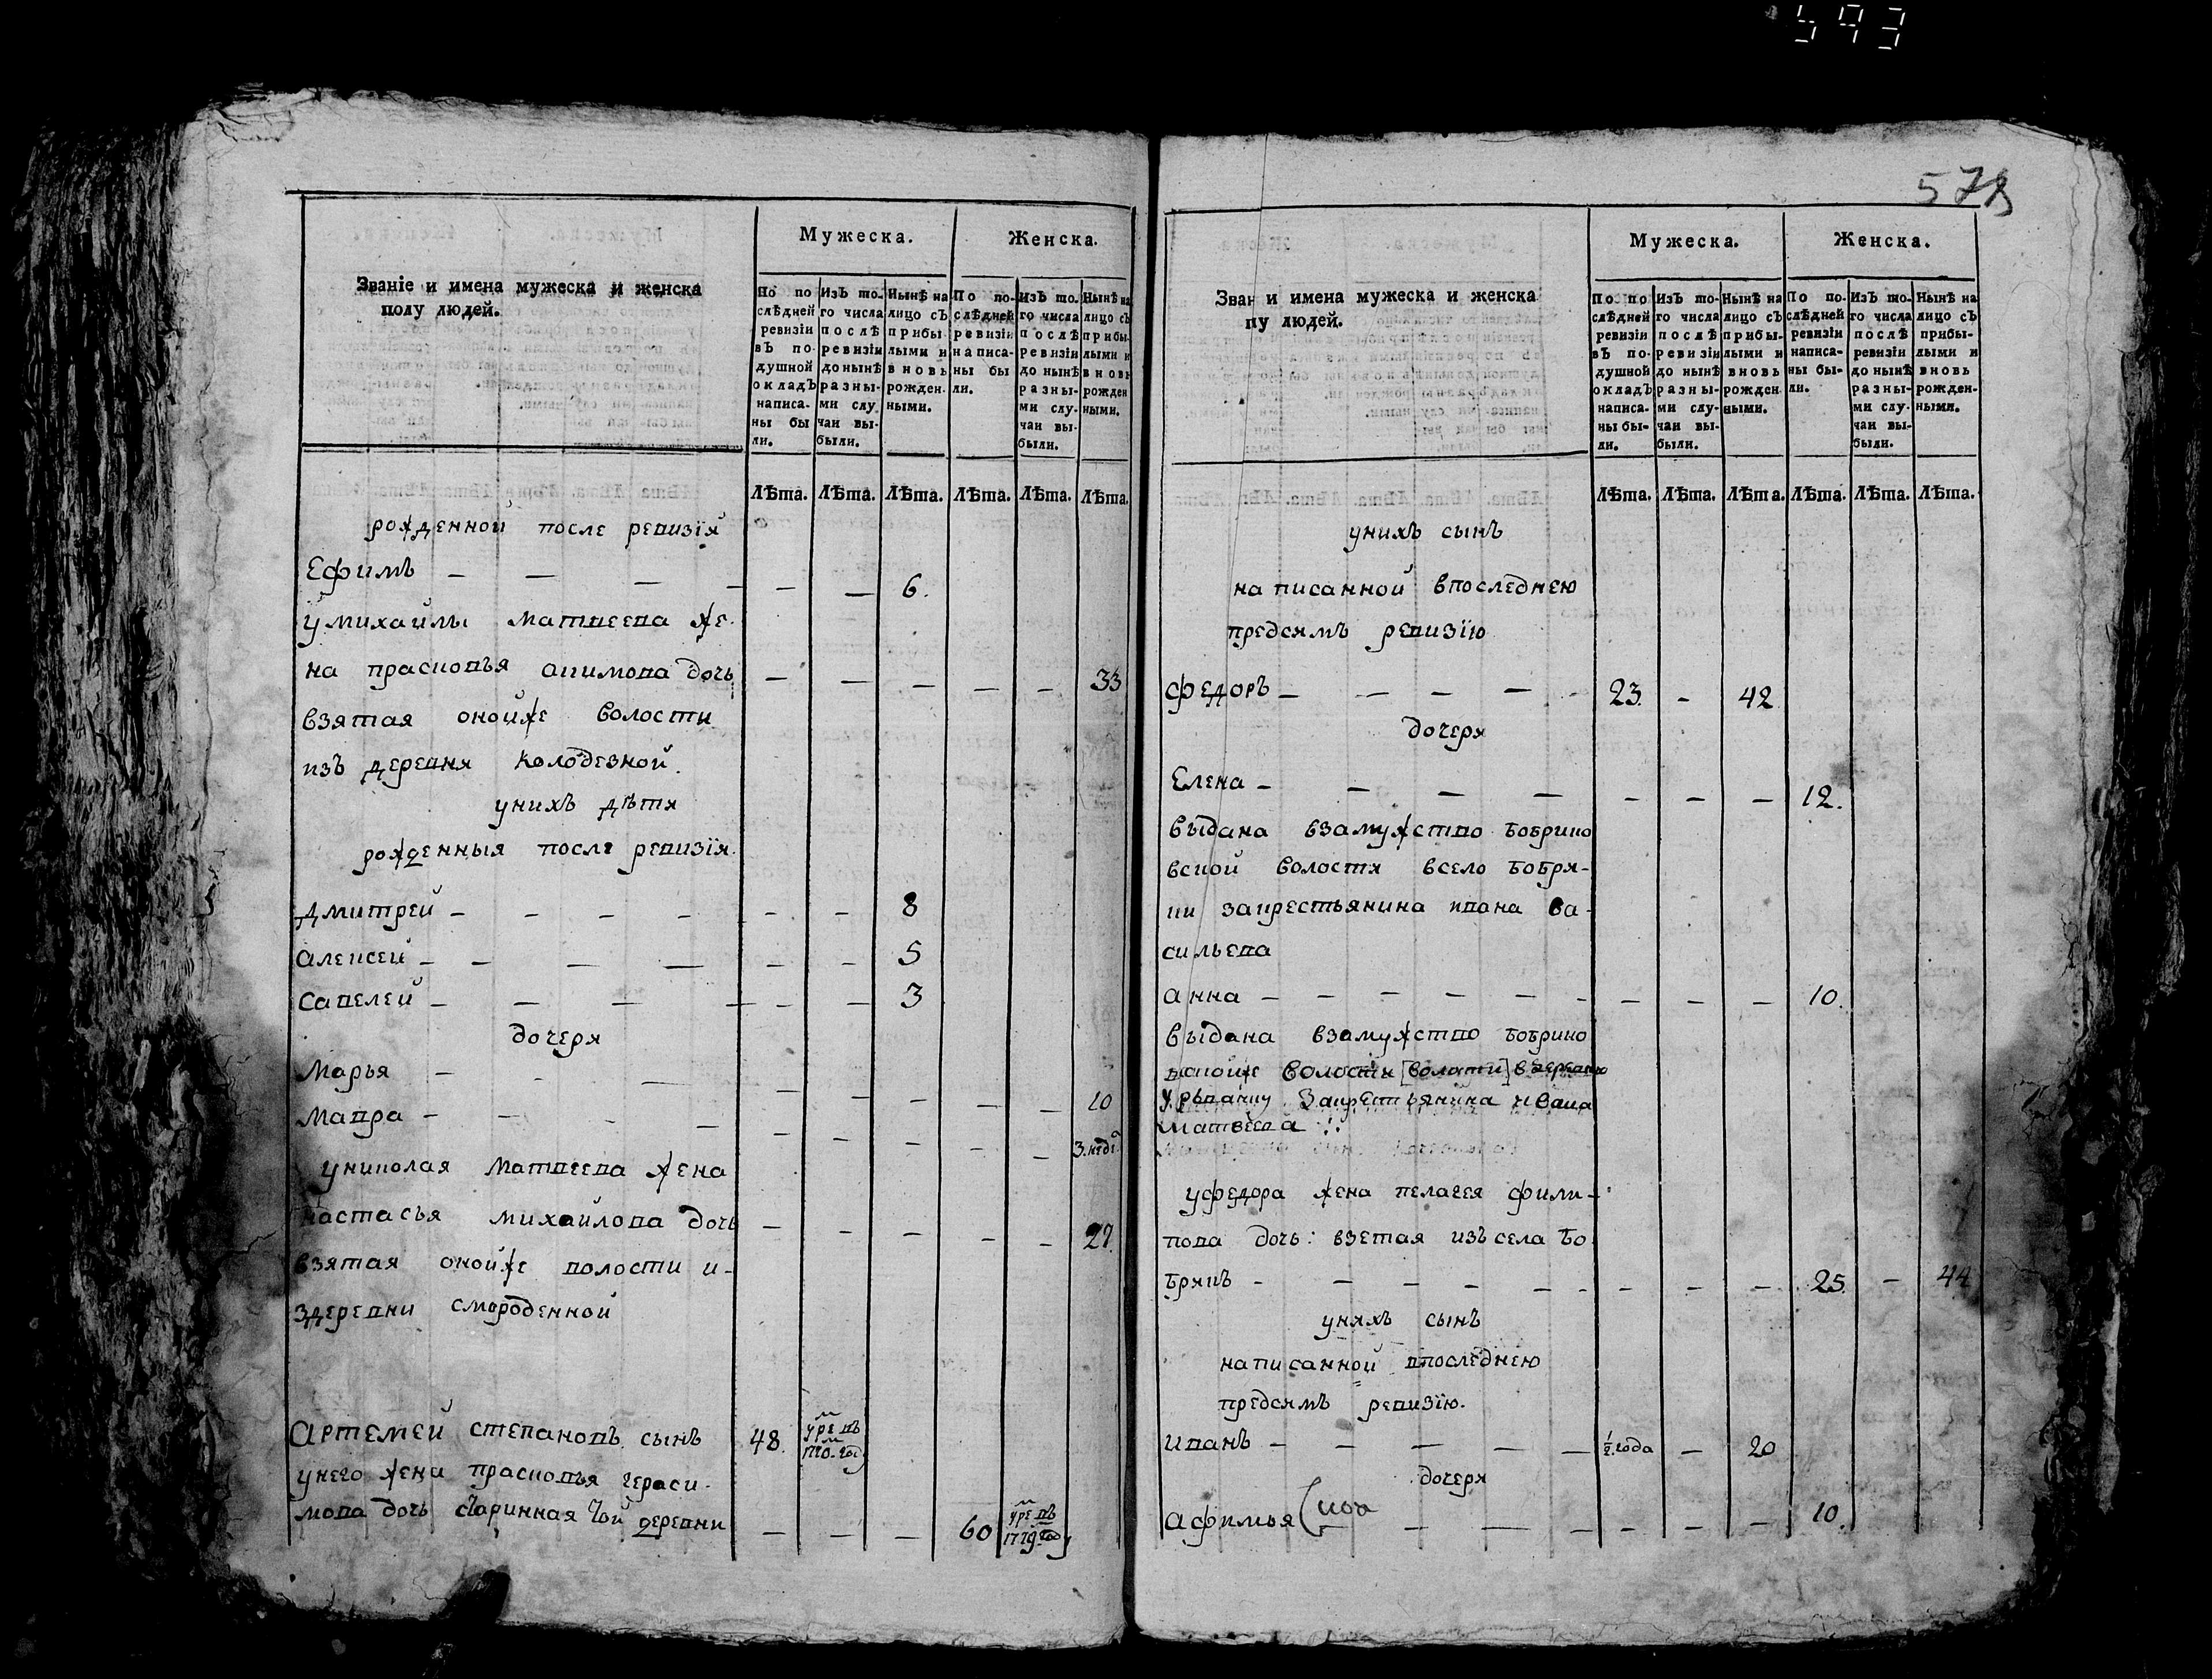 593
578
Званіе и имена мужеска и женска
полу людей.
Мужеска.
Женска.
По по
слѣдней
ревизіи
въ по-
душной
окладъ
написа-
ны бы
ли.
Изъ то-
го числа
послѣ
ревизіи
до нынѣ
разны-
ми слу
чаи вы-
были.
Нынѣ на
лицо съ
прибы
лыми и
вновь
рожден-
ными.
По по-
слѣдней
ревизіи
написа-
ны бы
ли.
Изъ то-
го числа
послѣ
ревизіи
до нынѣ
разны-
ми слу-
чаи вы-
были.
Нынѣ на
лицо съ
прибы-
лыми и
вновь
рожден
ными.
Лѣта. Лѣта. Лѣта. Лѣта. Лѣта. Лѣта.
рожденной после ревизїя
Ефимъ — — — — — — 6.
умихайлы матвеева же-
на прасковья акимова дочь — — — — — 33
взятая онойже волости
изъ деревня колодезной.
унихъ дѣтя
рожденныя после ревизїя.
дмитрей — — — — — — 8
алексей — — — — — — 5
савелей — — — — — — 3
дочеря
Марья — — — — — — — — 10
Мавра — — — — — — — — 3.неді
униколая матвеева жена
настасья михайлова дочь — — — — — 27.
взятая онойже волости и-
здеревни смороденной
Артемей степановъ сынъ 48. умре въ 1780. году
унего жена прасковья гераси-
мова дочь старинная той деревни — — — 60 умре въ 1779 году
Зван и имена мужеска и женска
пу людей.
Мужеска.
Женска.
По по
слѣдней
ревизіи
въ по-
душной
окладъ
написа-
ны бы-
ли.
Изъ то-
го числа
послѣ
ревизіи
до нынѣ
разны-
ми слу-
чаи вы-
были.
Нынѣ на
лицо съ
прибы-
лыми и
вновь
рожден
ными.
По по-
слѣдней
ревизіи
написа-
ны бы-
ли.
Изъ то-
го числа
послѣ
ревизіи
до нынѣ
разны-
ми слу-
чаи вы-
были.
Нынѣ на
лицо съ
прибы-
лыми и
вновь
рожден-
ными.
Лѣта. Лѣта. Лѣта. Лѣта. Лѣта. Лѣта.
унихъ сынъ
написанной впоследнею
предсямъ ревизїю
федоръ — — — — - 23. - 42
дочеря
Елена — — — — — — — 12.
выдана взамужство бобрико
вской волостя всело бобря-
ки закрестьянина ивана ва-
сильева
анна — — — — — — — — — 10.
выдана взамужство бобрико
вскойже волости [волости] вдеревню
закрестьянина ивана
матвеева
уфедора жена пелагея фили-
пова дочь: взетая изъ села бо-
брикъ — — — — — — — — — 25. — 44
уняхъ сынъ
написанной впоследнею
предсямъ ревизїю.
иванъ — — — — — ½.года — 20
дочеря
афимья — — — — — — — 10.